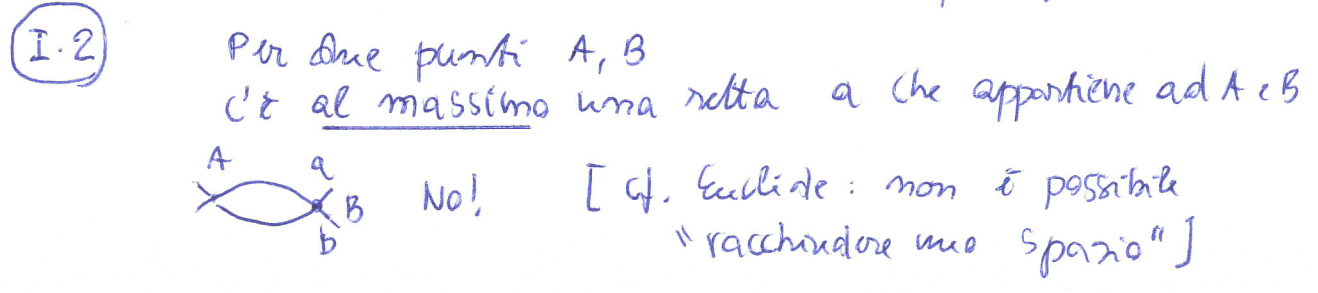 I.2 Per due punti A, B
c'è al massimo una retta a che appartiene ad A e B
A a B b No! [cf. Euclide: non è possibile
"racchiudere uno spazio"]